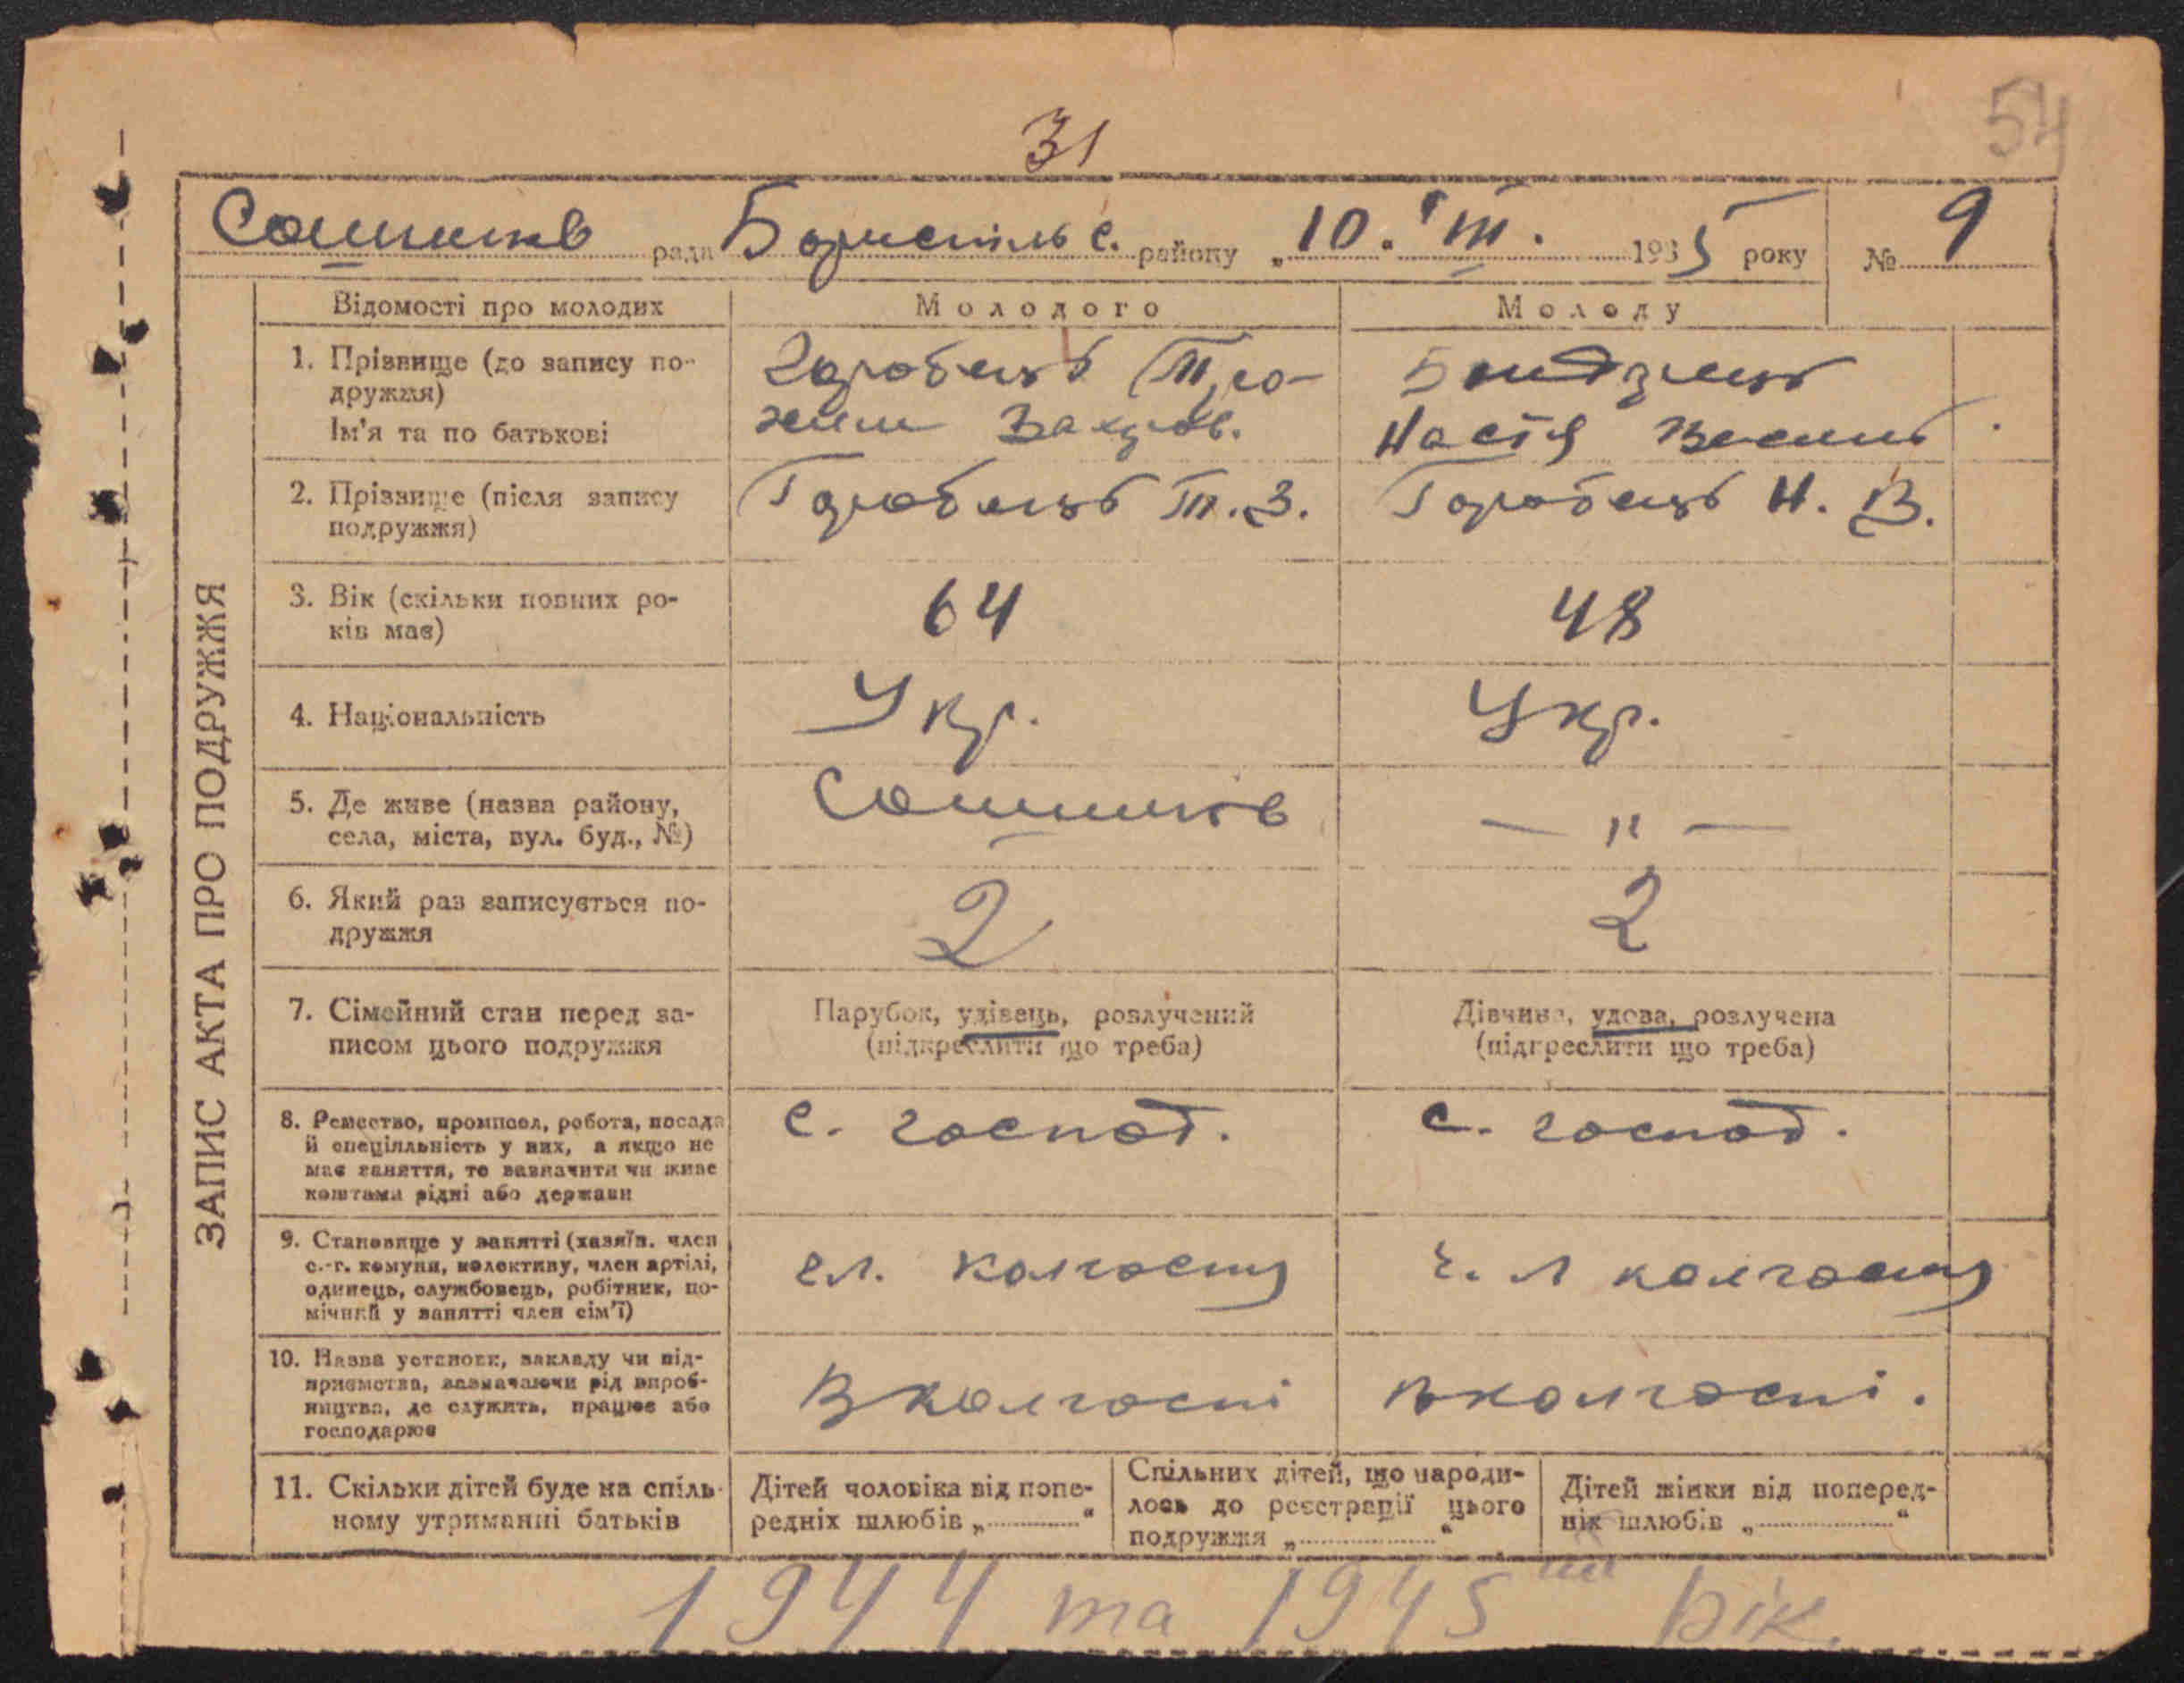 54
31
Сошників ради Бориспільс. району „10.“ III. 1935 року № 9
Відомості про молодих Молодого Молоду
1. Прізвище (до запису по-
дружжя)
Ім'я та по батькові
Горобець Тро-
хим Захаров.
Настя Васил
2. Прізвище (після запису
подружжя)
Горобець Т. З. Горобець Н. В.
3. Вік (скільки повних ро-
ків має)
64 48
4. Національність Укр. Укр.
5. Де живе (назва району,
села, міста, вул. буд., №)
Сошників — " —
6. Який раз записується по-
дружжя
2 2
7. Сімейний стан перед за-
писом цього подружжя
Парубок, удівець, розлучений
(підкреслити що треба)
Дівчина, удова, розлучена
(підкреслити що треба)
8. Ремество, промисел, робота, посада
й спеціяльність у них, а якщо не
має заняття, то зазначити чи живе
коштами рідні або держави
с. господ. с. господ.
9. Становище у занятті (хазяїн. член
с.-г. комуни, колективу, член артілі,
одинець, службовець, робітник, по-
мічний у занятті член сім'ї)
чл. колгоспу ч. л колгоспу
10. Назва установи, закладу чи під-
приємства, зазначаючи рід вироб-
ництва, де служить, працює або
господарює
В колгоспі в колгоспі.
11. Скільки дітей буде на спіль-
ному утриманні батьків
Дітей чоловіка від попе-
редніх шлюбів „ “
Спільних дітей, що народи-
лось до реєстрації цього
подружжя „ “
Дітей жінки від поперед-
ніх шлюбів „ “
ЗАПИС АКТА ПРО ПОДРУЖЖЯ
1944 та 1945 ий рік.